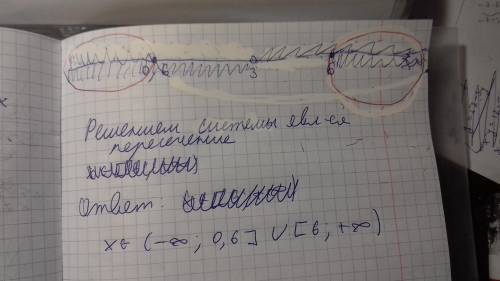 0,6 3 6
Решением системы явл-ся
пересечение
Ответ:
x ∈ (-∞; 0,6] ∪ [6; +∞)